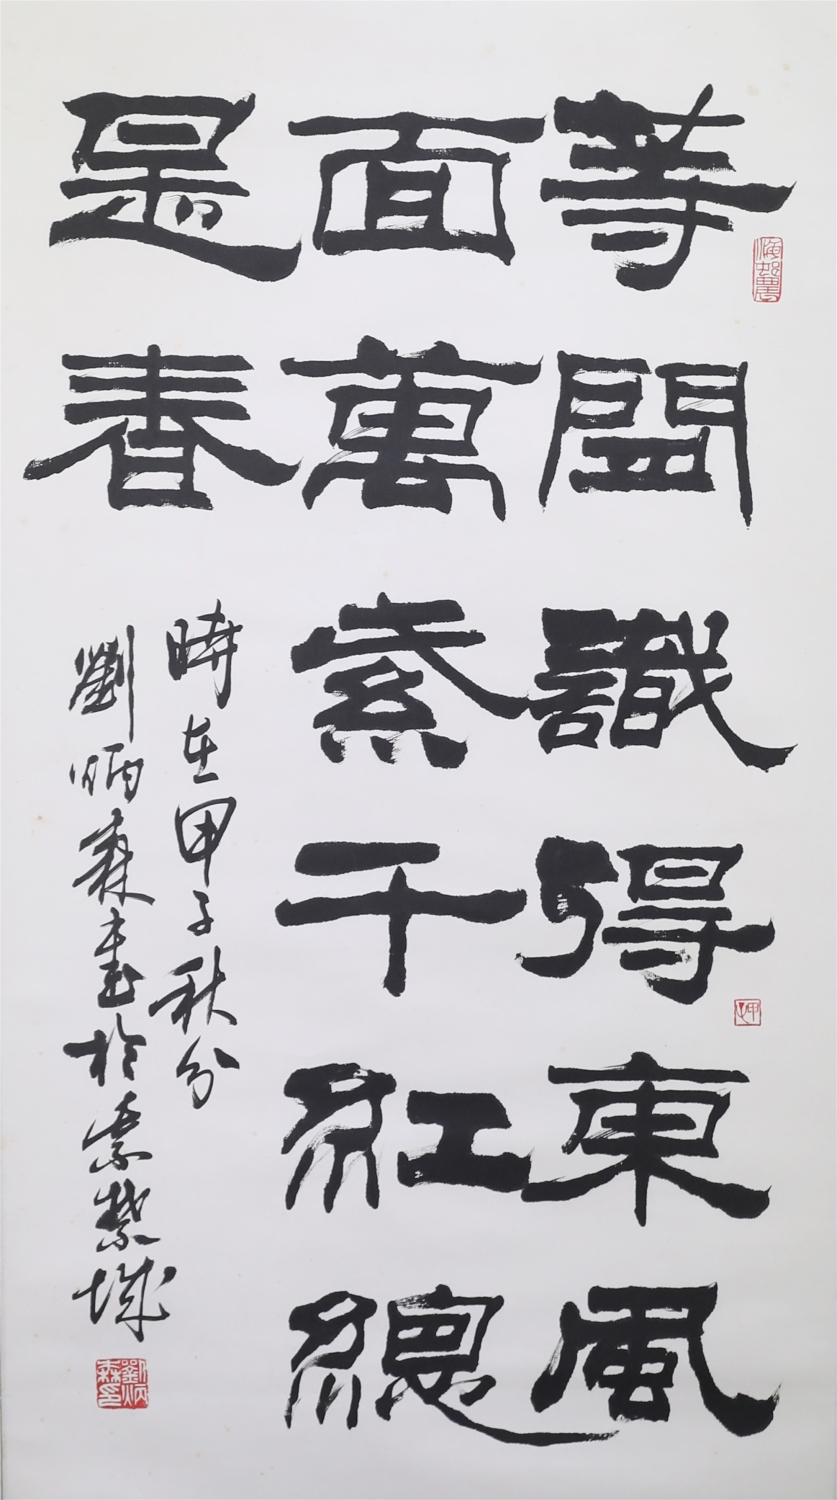 等閒識得東風
面萬紫千紅總
是春
時在甲子秋分
劉炳森書於紫禁城
劉炳森印